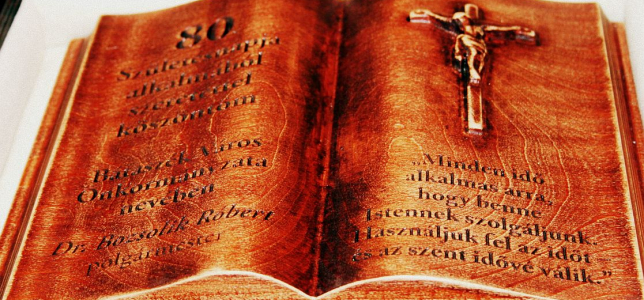 80
Születésnapja
alkalmából
szeretettel
köszöntöm
Bátaszék Város
Önkormányzata
nevében
Dr. Bozsolik Róbert
polgármester
„Minden idő
alkalmas arra,
hogy benne
Istennek szolgáljunk.
Használjuk fel az időt
és az szent idővé válik.”